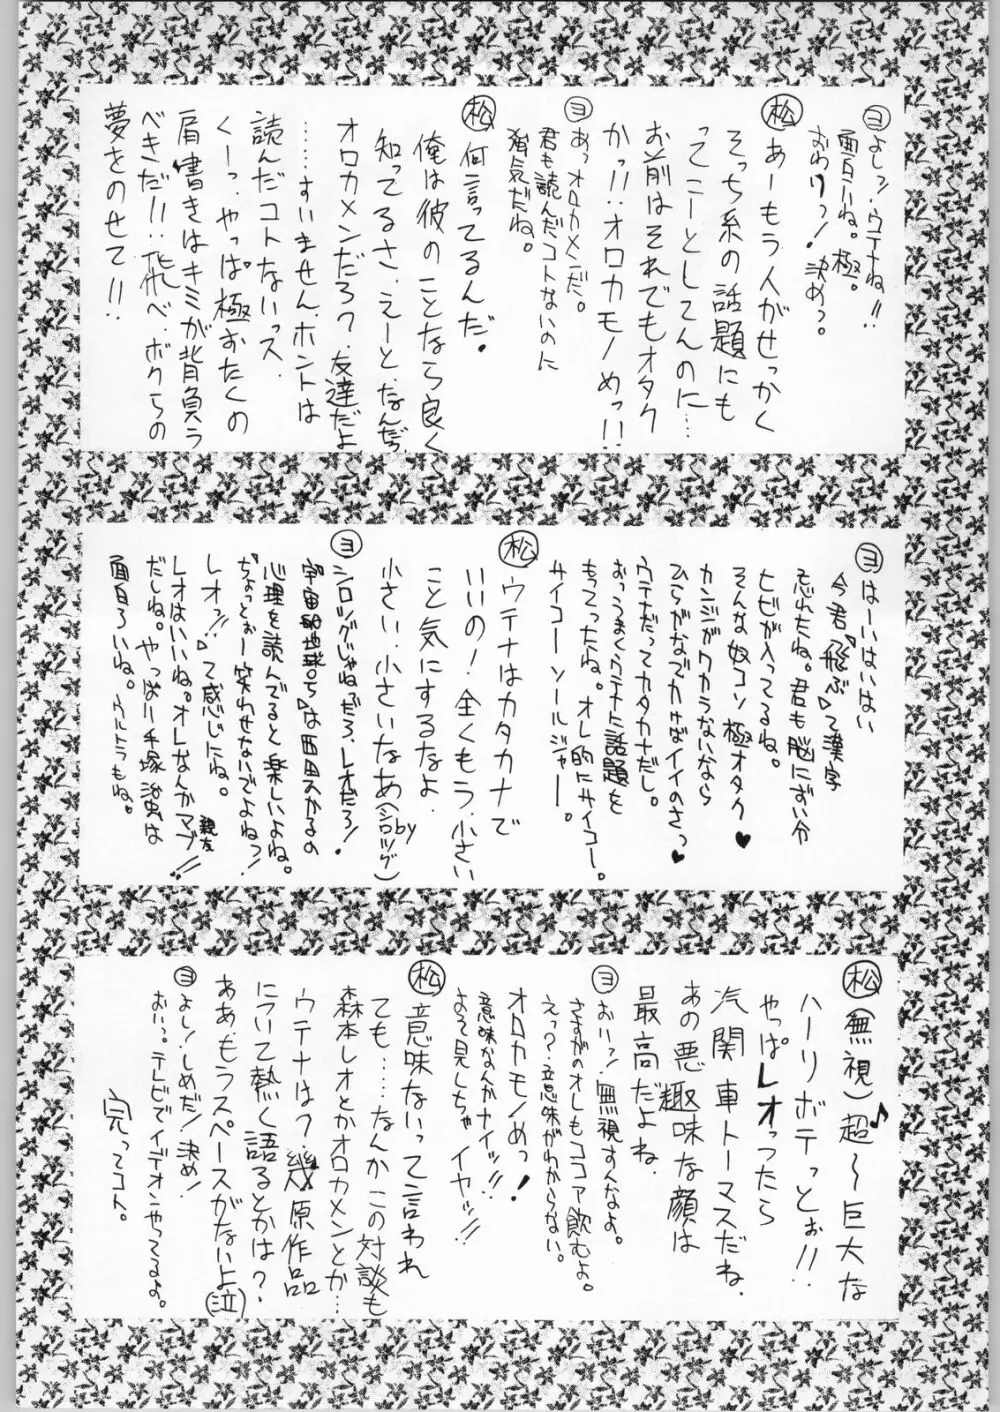 ヨ よしッ!ウテナね!!
面白いね。極。
おわりっ!決めっ。
松 あーもう人がせっかく
そっち系の話題にも
ってこーとしてんのに…
お前はそれでもオタク
かっ!!オロカモノめっ!!
ヨ あっオロカメンだ。
君も読んだコトないのに
病気だね。
松 何言ってるんだ。
俺は彼のことなら良く
知ってるさ、えーと、なんだっ
オロカメンだろ?友達だよ
……すいません、ホントは
読んだコトないっス
くーっ、やっぱ極おたくの
肩書きはキミが背負う
べきだ!!飛べ、ボクらの
夢をのせて!!
ヨ はーいはいはい
今君『飛ぶ』て漢字
忘れたね。君も脳にずい分
ヒビが入ってるね。
そんな奴コソ極オタク♥
カンジがワカラないなら
ひらがなでカけばイイのさっ♥
ウテナだってカタカナだし。
おっうまくウテナに話題を
もってったね。オレ的にサイコー。
サイコーソールジャー。
松 ウテナはカタカナで
いいの!全くもう、小さい
こと気にするなよ、
小さい、小さいなあ(by
シロッグ)
ヨ シロッグじゃねーだろ、レオだろ!
『宇宙船地球号』は西田ひかるの
心理を読んでると楽しいよね。
『ちょっとぉー笑わせないでよねっ!
レオッ!!』って感じにね。
レオはいいね。オレなんかマブ親友!!
だしね。やっぱり手塚治虫は
面白ろいね。ウルトラもね。
松 (無視)超〜巨大な♪
ハーリボテっとぉ!!
やっぱレオったら
汽関車トーマスだね、
あの悪趣味な顔は
最高だよね、
ヨ おいっ!無視すんなよ。
さすがのオレもココア飲むよ。
えっ?意味がわからない。
オロカモノめっ!
意味なんかナイッ!!
よそ見しちゃイヤッ!!
松 意味ないって言われ
ても……なんかこの対談も
森本レオとかオロカメンとか…
ウテナは?幾原作品
について熱く語るとかは?
ああもうスペースがないよ(泣)
ヨ よし!しめだ!決め!
おいっ。テレビでイデオンやってるよ。
完ってコト。